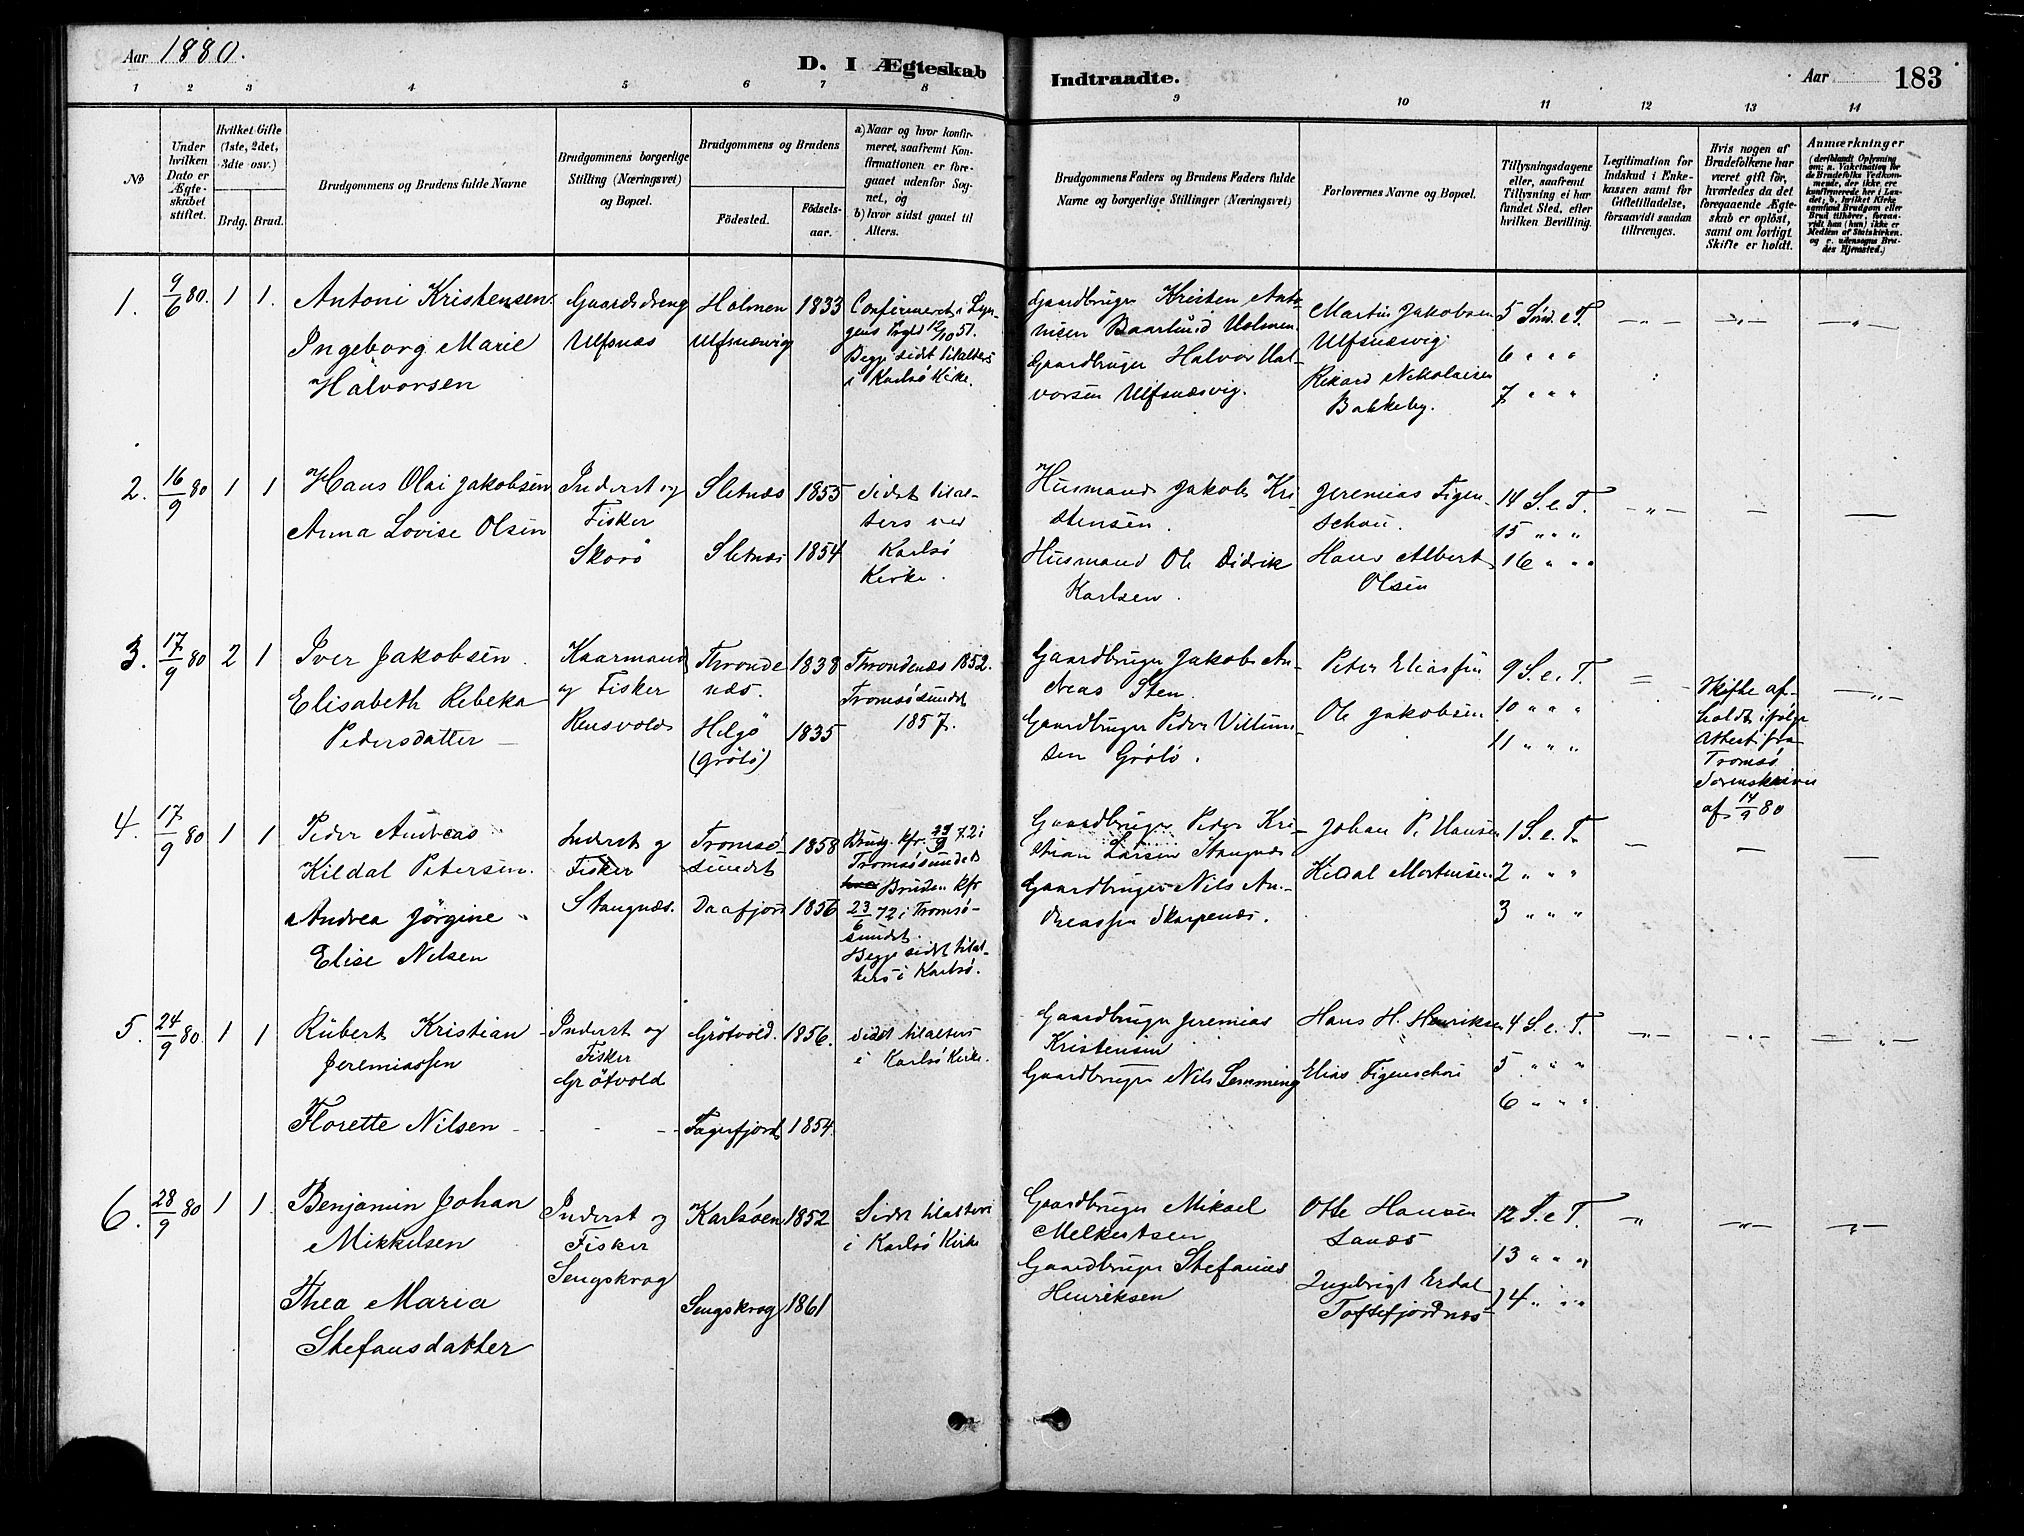 Aar 1880.
D. I Ægteskab
Indtraadte.
Aar
183
1 2 3 4 5 6 7 8 9 10 11 12 13 14
No
Under hvilken Dato er Ægteskabet stiftet.
Hvilket Gifte (1ste, 2det, 3dte osv.)
Brdg. Brud.
Brudgommens og Brudens fulde Navne
Brudgommens borgerlige Stilling (Næringsvei) og Bopæl.
Brudgommens og Brudens
Födested.
Födselsaar.
a) Naar og hvor konfirmeret, saafremt Konfirmationen er foregaaet udenfor Sognet, og
b) hvor sidst gaaet til Alters.
Brudgommens Faders og Brudens Faders fulde Navne og borgerlige Stillinger (Næringsvei)
Forlovernes Navne og Bopæl.
Tillysningsdagene eller, saafremt Tillysning ei har fundet Sted, efter hvilken Bevilling.
Legitimation for Indskud i Enkekassen samt for Giftetilladelse, forsaavidt saadan tiltrænges.
Hvis nogen af Brudefolkene har været gift för, hvorledes da det foregaaende Ægteskab er oplöst, samt om lovligt Skifte er holdt.
Anmærkninger
(deriblandt Oplysning om: a. Vakcination for de Brudefolks Vedkommende, der ikke ere konfirmerede her i Landet; b. hvilket Kirkesamfund Brudgom eller Brud tilhörer, forsaavidt han (hun) ikke er Medlem af Statskirken. og c. udensogns Brudes Hjemsted.)
1. 9/6 80. 1 1.
Antoni Kristensen.
Ingeborg Marie
Halvorsen
Gaardsdreng
Ulfsnæs
Holmen 1833
Ulfsnæsvig
Confirmeret i Lyn-
gens Prgld 12/10 51.
Begge sidst tilalters
i Karlsö Kirke.
Gaardbruger Kristen Anto-
nisen Holmen.
Gaardbruger Halvor Hal-
vorsen Ulfsnæsvig.
Martin Jakobsen
Ulfsnæsvig
Rikard Nikolaisen
Bakkeby.
5 Sönd. e T.
6 " " "
7 " " "
2. 16/9 80 1 1
Hans Olai Jakobsen
Anna Lovise Olsen
Inderst og
Fisker
Skorö
Sletnæs 1855
Sletnæs 1854
Sidst tilal-
ters ved
Karlsö
Kirke.
Husmand Jakob Kri-
stensen.
Husmand Ole Didrik
Karlsen.
Jeremias Figen-
schou.
Hans Albert
Olsen
14 S. e T.
15 " " "
16 " " "
3. 17/9 80 2 1
Iver Jakobsen.
Elisabeth Rebeka
Pedersdatter
Kaarmand
og Fisker
Reusvold
Thronde
næs. 1838
Helgö
(Grötö) 1835
Throndenæs 1852.
Tromsösundet
1857.
Gaardbruger Jakob An-
dreas Sten.
Gaardbruger Peder Villum-
sen Grötö.
Peter Eliassen
Ole Jakobsen
9 S. e. T.
10 " " "
11 " " "
Skifte af-
holdt ifölge
Attest fra
Tromsö
Sorenskriver
af 14/9 80
4. 17/9 80 1 1
Peder Andreas
Kildal Petersen.
Andrea Jörgine
Elise Nilsen
Inderst og
Fisker
Stangnæs.
Tromsö-
sundet 1858
Daafjord 1856
Brudg. kfr. 29/9 72 i
Tromsösundet
Bruden kfr
23/6 72 i Tromsö-
sundet.
Begge sidst tilal-
ters i Karlsö.
Gaardbruger Peder Kri-
stian Larsen Stangnæs
Gaardbruger Nils An-
dreassen Skarpenæs.
Johan P. Hansen
Kildal Mortensen
1 S. e. T.
2 " " "
3 " " "
5. 24/9 80 1 1
Rubert Kristian
Jeremiassen
Florette Nilsen
Inderst og
Fisker
Grötvold
Grötvold. 1856.
Fagerfjord 1854.
Sidst tilalters
i Karlsö Kirke.
Gaardbruger Jeremias
Kristensen
Gaardbruger Nils Lemming
Hans H. Henriksen
Elias Figenschou
4 S. e. T.
5 " " "
6 " " "
6. 28/9 80 1 1.
Benjamin Johan
Mikkelsen
Thea Maria
Stefansdatter
Inderst og
Fisker
Sengskrog
Karlsöen 1852
Sengskrog 1861
Sidst tilalters
i Karlsö Kirke
Gaardbruger Mikael
Melkertsen
Gaardbruger Stefanus
Henriksen
Otte Hansen
Lanæs
Ingebrigt Erdal
Toftefjordnæs
12 S. e T.
13 " " "
14 " " "